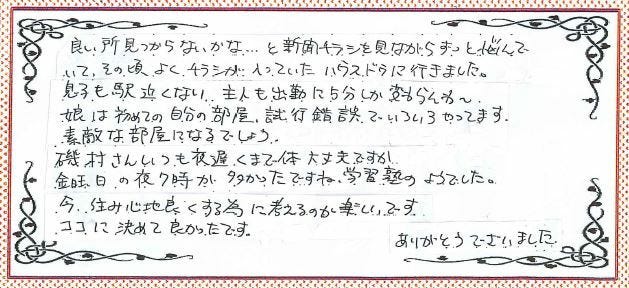 良い所見つからないかな…と新聞チラシを見ながらずっと悩んで
いて、その頃よくチラシが入っていたハウスドゥに行きました。
息子も駅近くない、主人も出勤に5分しか変わらんか〜
娘は初めての自分の部屋、試行錯誤でいろいろやってます。
素敵な部屋になるでしょう。
磯村さんいつも夜遅くまで体大丈夫ですか
金曜日の夜7時が多かったですね、学習塾のようでした。
今、住み心地良くする為に考えるのが楽しいです。
ココに決めて良かったです。
ありがとうございました。